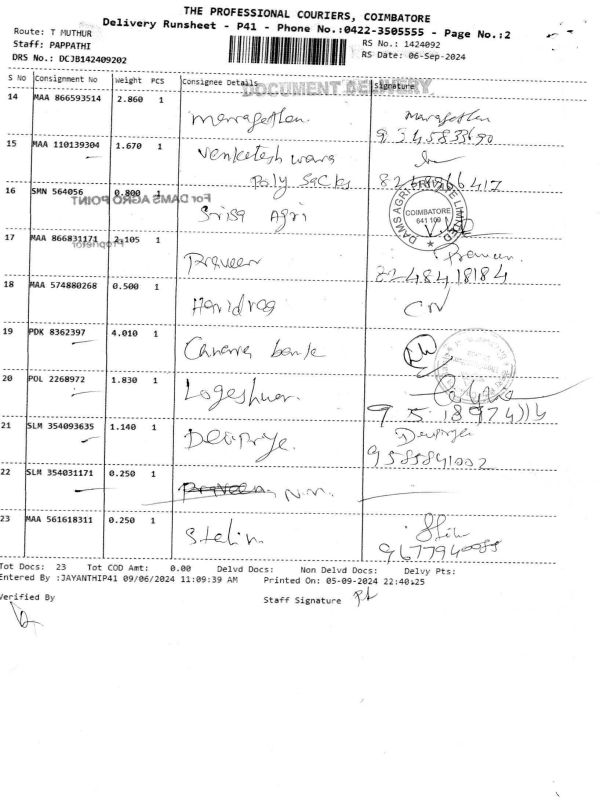 THE PROFESSIONAL COURIERS, COIMBATORE
Delivery Runsheet - P41 - Phone No.:0422-3505555 - Page No.:2
Route: T MUTHUR
Staff: PAPPATHI
RS No.: 1424092
DRS No.: DCJB142409202
RS Date: 06-Sep-2024
S No Consignment No Weight PCS Consignee Details Signature
DOCUMENT DELIVERY
14 MAA 866593514 2.860 1
15 MAA 110139304 1.670 1 Venketeshwara
Poly Sacks
16 SMN 564056 0.800 1 Srisa Agri
For DAMS AGRO POINT
Proprietor
DAMS AGRI PRIVATE LIMITED
COIMBATORE
641 109
17 MAA 866831171 2.105 1 Praveen Praveen
18 MAA 574880268 0.500 1 CN
19 PDK 8362397 4.010 1 Canara bank
20 POL 2268972 1.830 1 Logeshwar.
21 SLM 354093635 1.140 1 Devprye. Devprye
9585841002
22 SLM 354031171 0.250 1 N.N.
23 MAA 561618311 0.250 1 Stelin
Tot Docs: 23 Tot COD Amt: 0.00 Delvd Docs: Non Delvd Docs: Delvy Pts:
Entered By :JAYANTHIP41 09/06/2024 11:09:39 AM Printed On: 05-09-2024 22:40:25
Verified By
Staff Signature